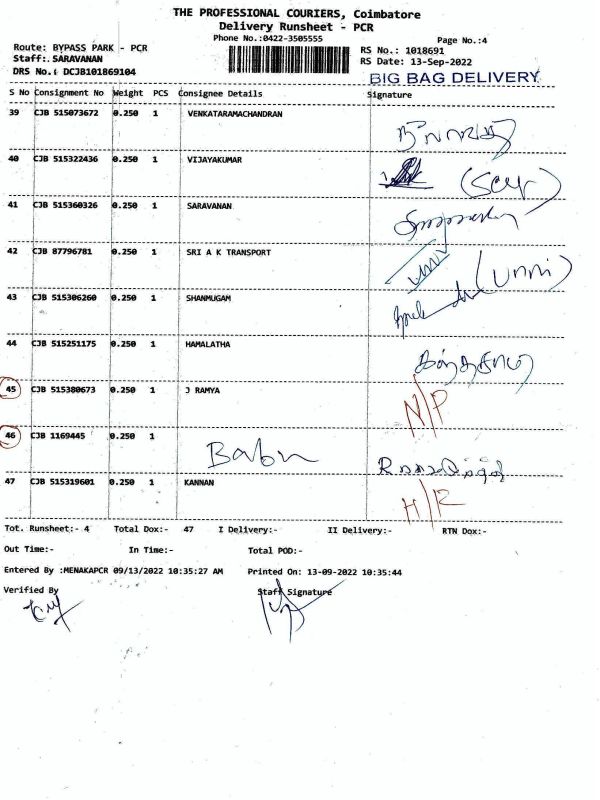 THE PROFESSIONAL COURIERS, Coimbatore
Delivery Runsheet - PCR
Phone No.:0422-3505555
Page No.:4
Route: BYPASS PARK - PCR
RS No.: 1018691
Staff: SARAVANAN
RS Date: 13-Sep-2022
DRS No.: DCJB101869104
BIG BAG DELIVERY
S No Consignment No Weight PCS Consignee Details Signature
39 CJB 515073672 0.250 1 VENKATARAMACHANDRAN
40 CJB 515322436 0.250 1 VIJAYAKUMAR
41 CJB 515360326 0.250 1 SARAVANAN
42 CJB 87796781 0.250 1 SRI A K TRANSPORT (unni)
43 CJB 515306260 0.250 1 SHANMUGAM
44 CJB 515251175 0.250 1 HAMALATHA
45 CJB 515380673 0.250 1 J RAMYA N/P
46 CJB 1169445 0.250 1 Babu
47 CJB 515319601 0.250 1 KANNAN
Tot. Runsheet:- 4 Total Dox:- 47 I Delivery:- II Delivery:- RTN Dox:-
Out Time:- In Time:- Total POD:-
Entered By :MENAKAPCR 09/13/2022 10:35:27 AM Printed On: 13-09-2022 10:35:44
Verified By Staff Signature